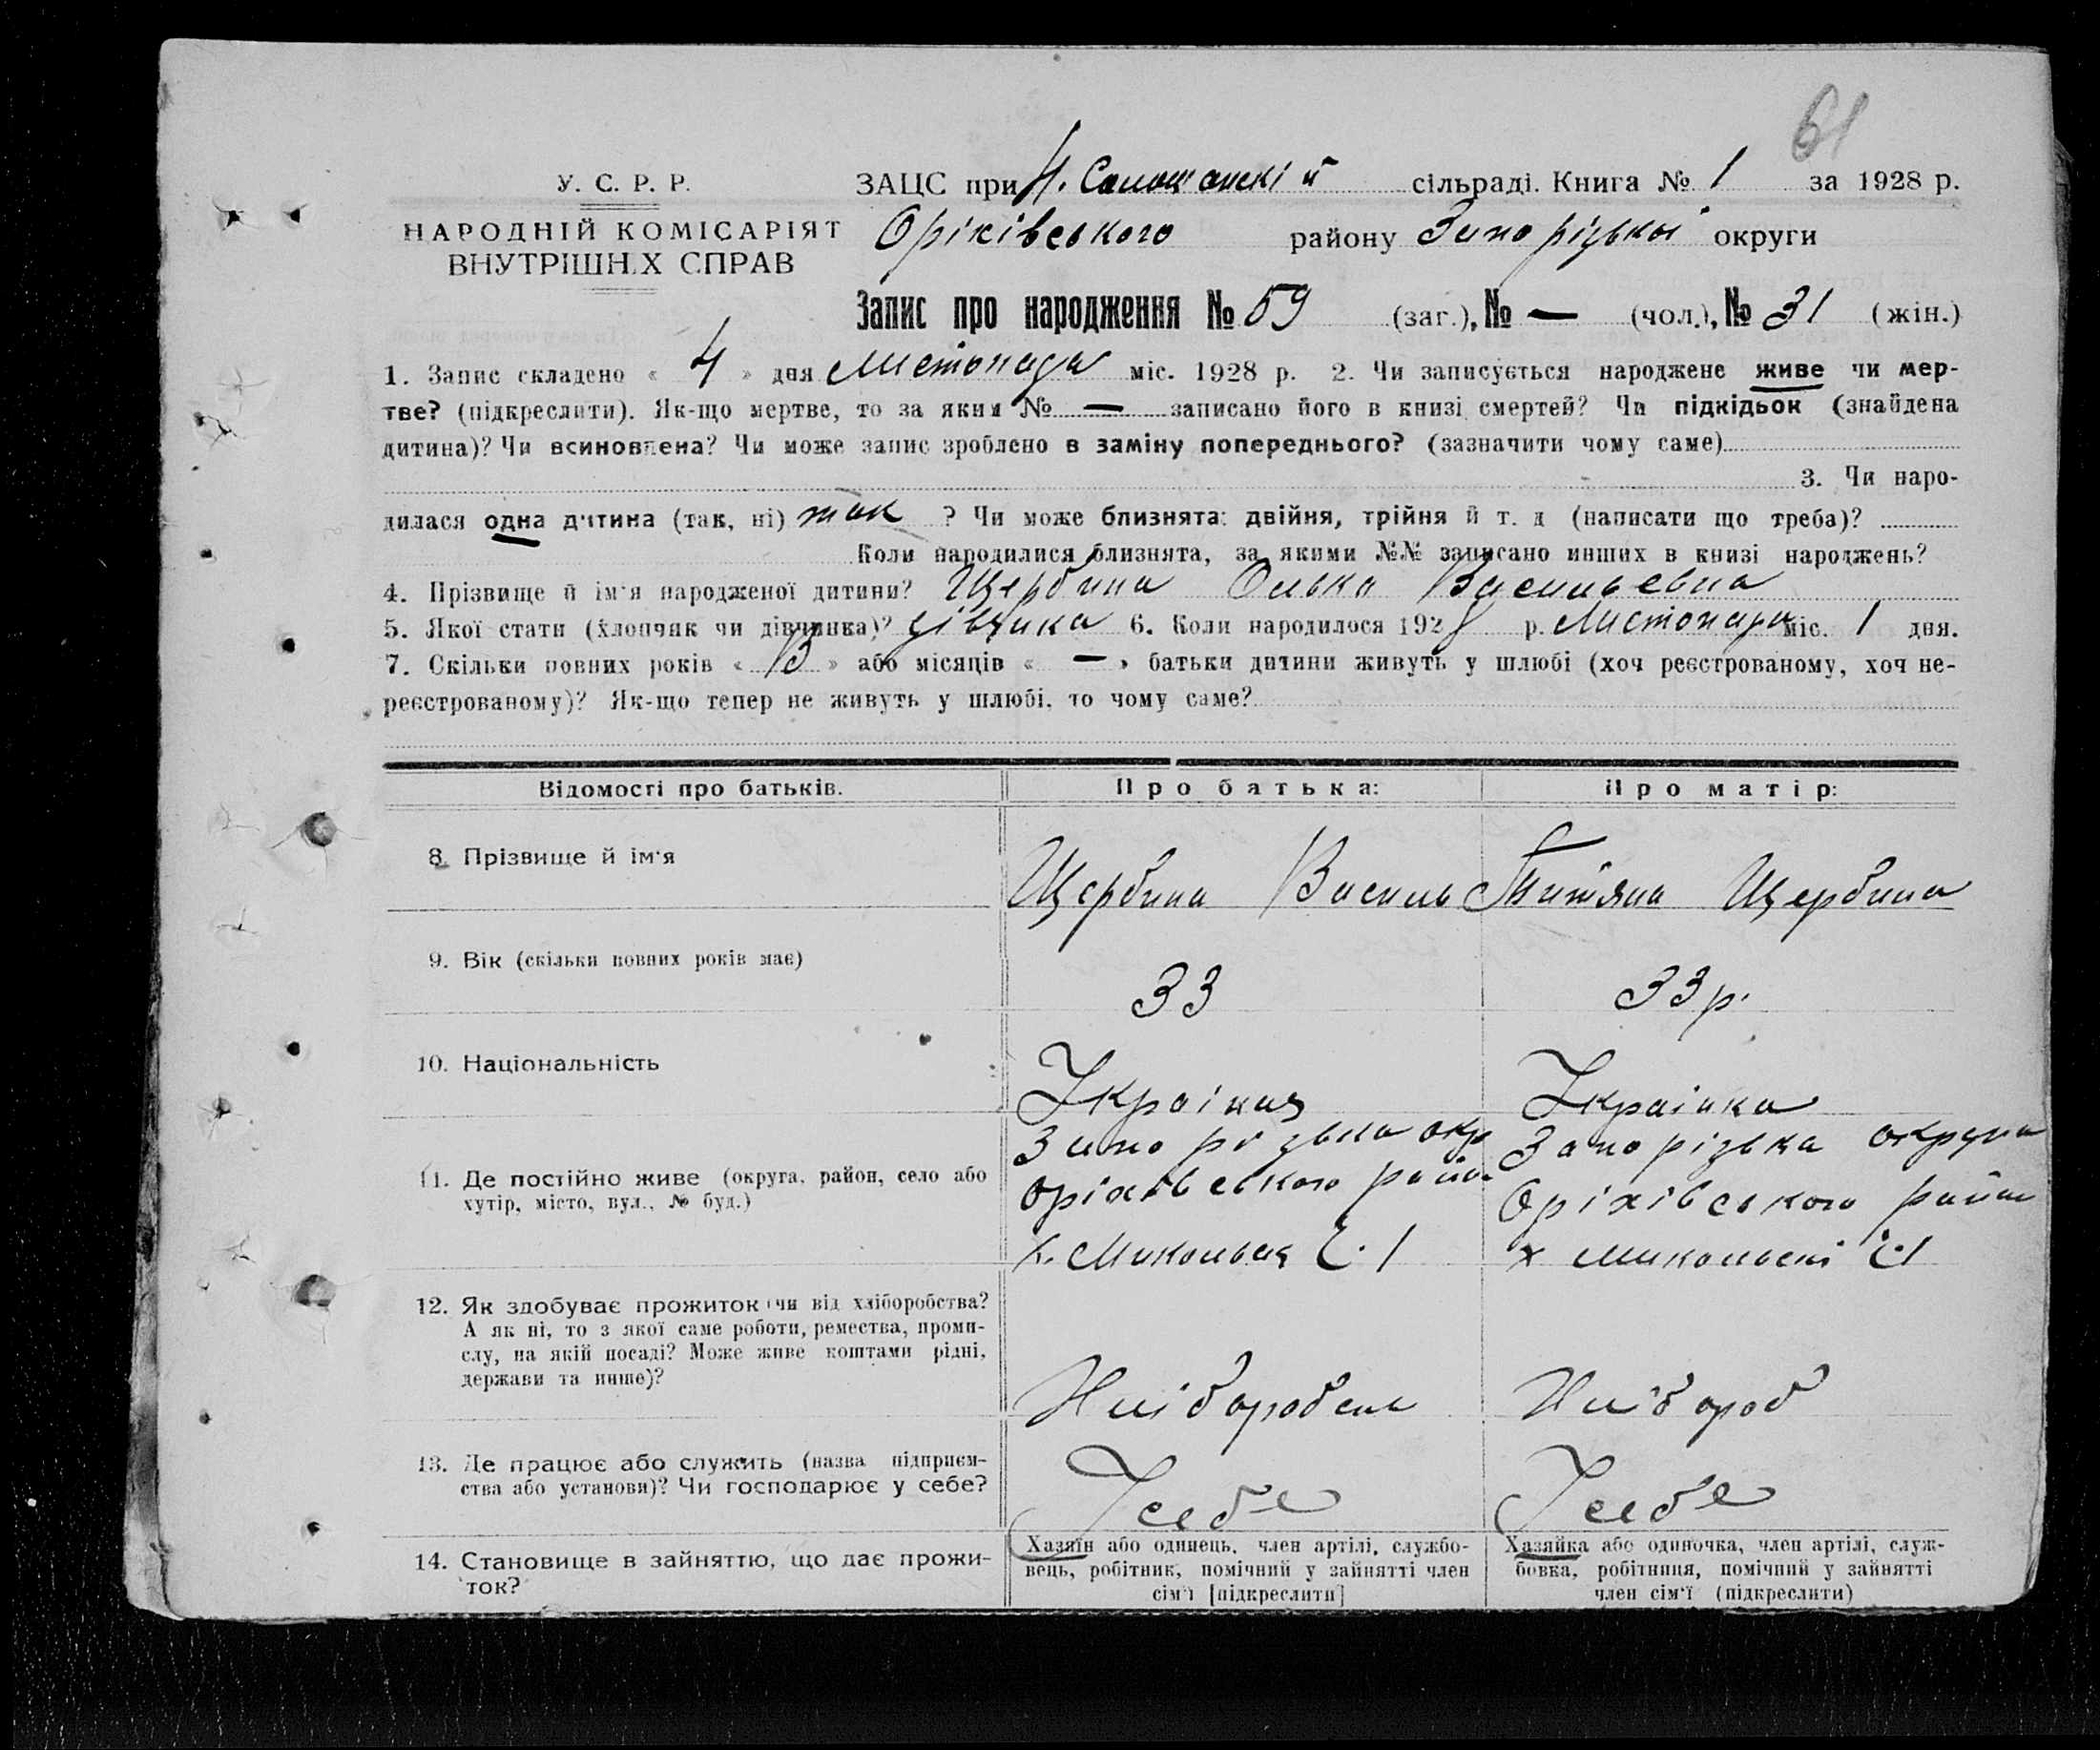 61
У. С. Р. Р.
НАРОДНІЙ КОМІСАРІЯТ
ВНУТРІШНІХ СПРАВ
ЗАЦС при сільраді. Книга № 1 за 1928 р.
Оріхівського району Запорізької округи
Запис про народження № 59 (заг.), № — (чол.), № 31 (жін.)
1. Запис складено « 4 » дня Листопада міс. 1928 р. 2. Чи записується народжене живе чи мер-
тве? (підкреслити). Як-що мертве, то за яким № — записано його в книзі смертей? Чи підкідьок (знайдена
дитина)? Чи всиновлена? Чи може запис зроблено в заміну попереднього? (зазначити чому саме)
3. Чи наро-
дилася одна дитина (так, ні) так ? Чи може близнята: двійня, трійня й т. д (написати що треба)?
Коли народилися близнята, за якими №№ записано инших в книзі народжень?
4. Прізвище й ім'я народженої дитини? Щербина Ольга Васильевна
5. Якої стати (хлопчик чи дівчинка)? дівчика 6. Коли народилося 1928 р. Листопада міс. 1 дня.
7. Скільки повних років « 13 » або місяців « — » батьки дитини живуть у шлюбі (хоч реєстрованому, хоч не-
реєстрованому)? Як-що тепер не живуть у шлюбі, то чому саме?
Відомості про батьків. Про батька: Про матір:
8. Прізвище й ім'я Щербина Василь Татяна Щербина
9. Вік (скільки повних років має) 33 33 р.
10. Національність Украінец Украінка
11. Де постійно живе (округа, район, село або
хутір, місто, вул., № буд.)
Запорізька окр Запорізька округа
Оріхівського район Оріхівського район
х. Микольск Ч. 1 х Микольскі Ч. 1
12. Як здобуває прожиток (чи від хліборобства?
А як ні, то з якої саме роботи, ремества, проми-
слу, на якій посаді? Може живе коштами рідні,
держави та инше)?
Хлібороб Хлібороб
13. Де працює або служить (назва підприєм-
ства або установи)? Чи господарює у себе?
У себе У себе
14. Становище в зайняттю, що дає прожи-
ток?
Хазяїн або одинець, член артілі, службо-
вець, робітник, помічний у зайнятті член
сім'ї [підкреслити]
Хазяйка або одиночка, член артілі, служ-
бовка, робітниця, помічний у зайнятті
член сім'ї (підкреслити)